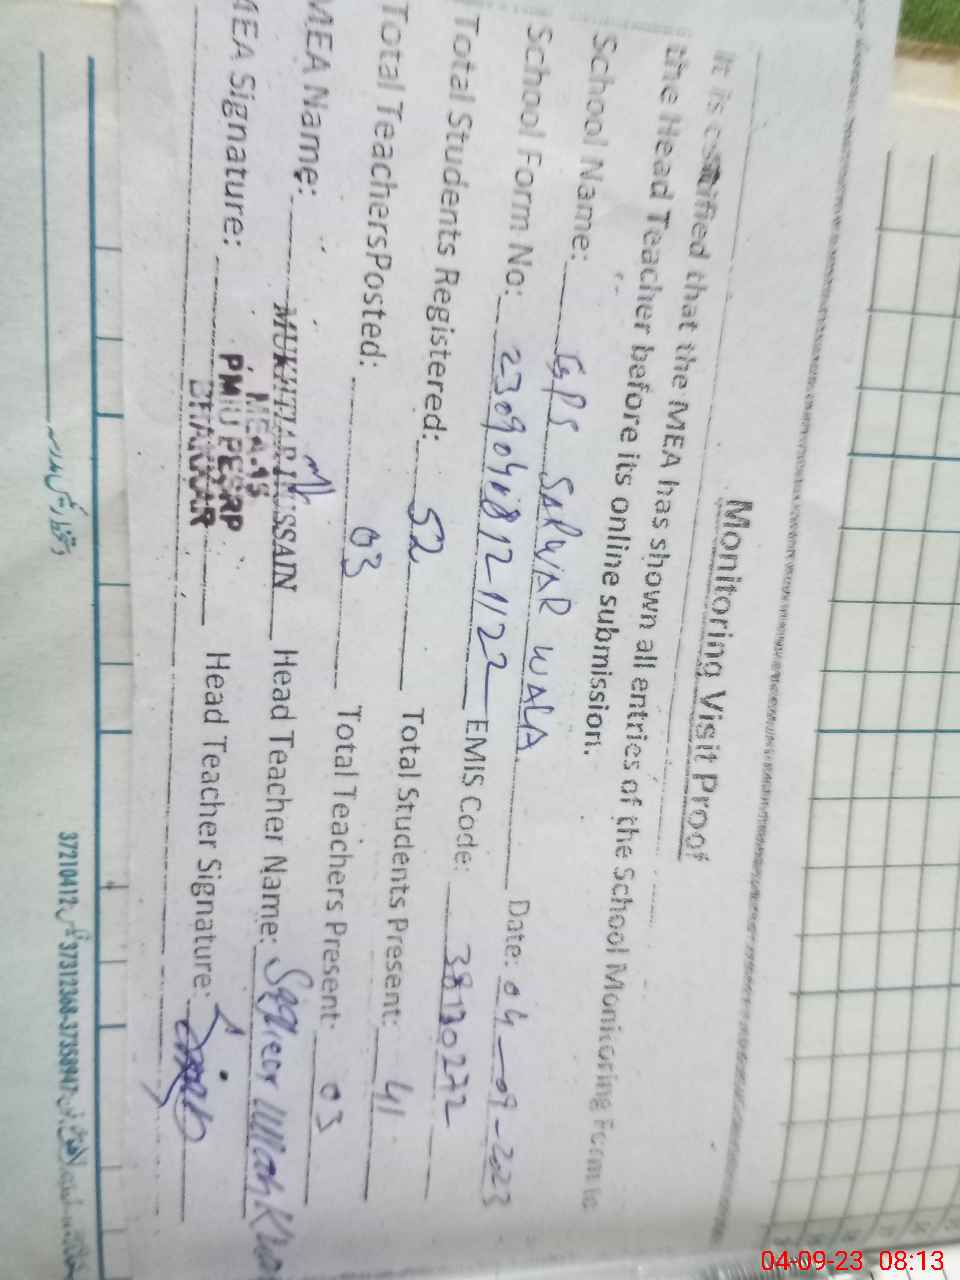 Monitoring Visit Proof
It is certified that the MEA has shown all entries of the School Monitoring Form to
the Head Teacher before its online submission.
School Name: GPS SARWAR WALA Date: 04-09-2023
School Form No: EMIS Code: 38130272
Total Students Registered: 52 Total Students Present: 41
Total TeachersPosted: 03 Total Teachers Present: 03
MEA Name: MUKHTIAR HUSSAIN Head Teacher Name: Ullah Khan
MEA Signature: Head Teacher Signature:
PMIU PESRP
BHAKKAR
37210412 37312368-37358947
04-09-23 08:13